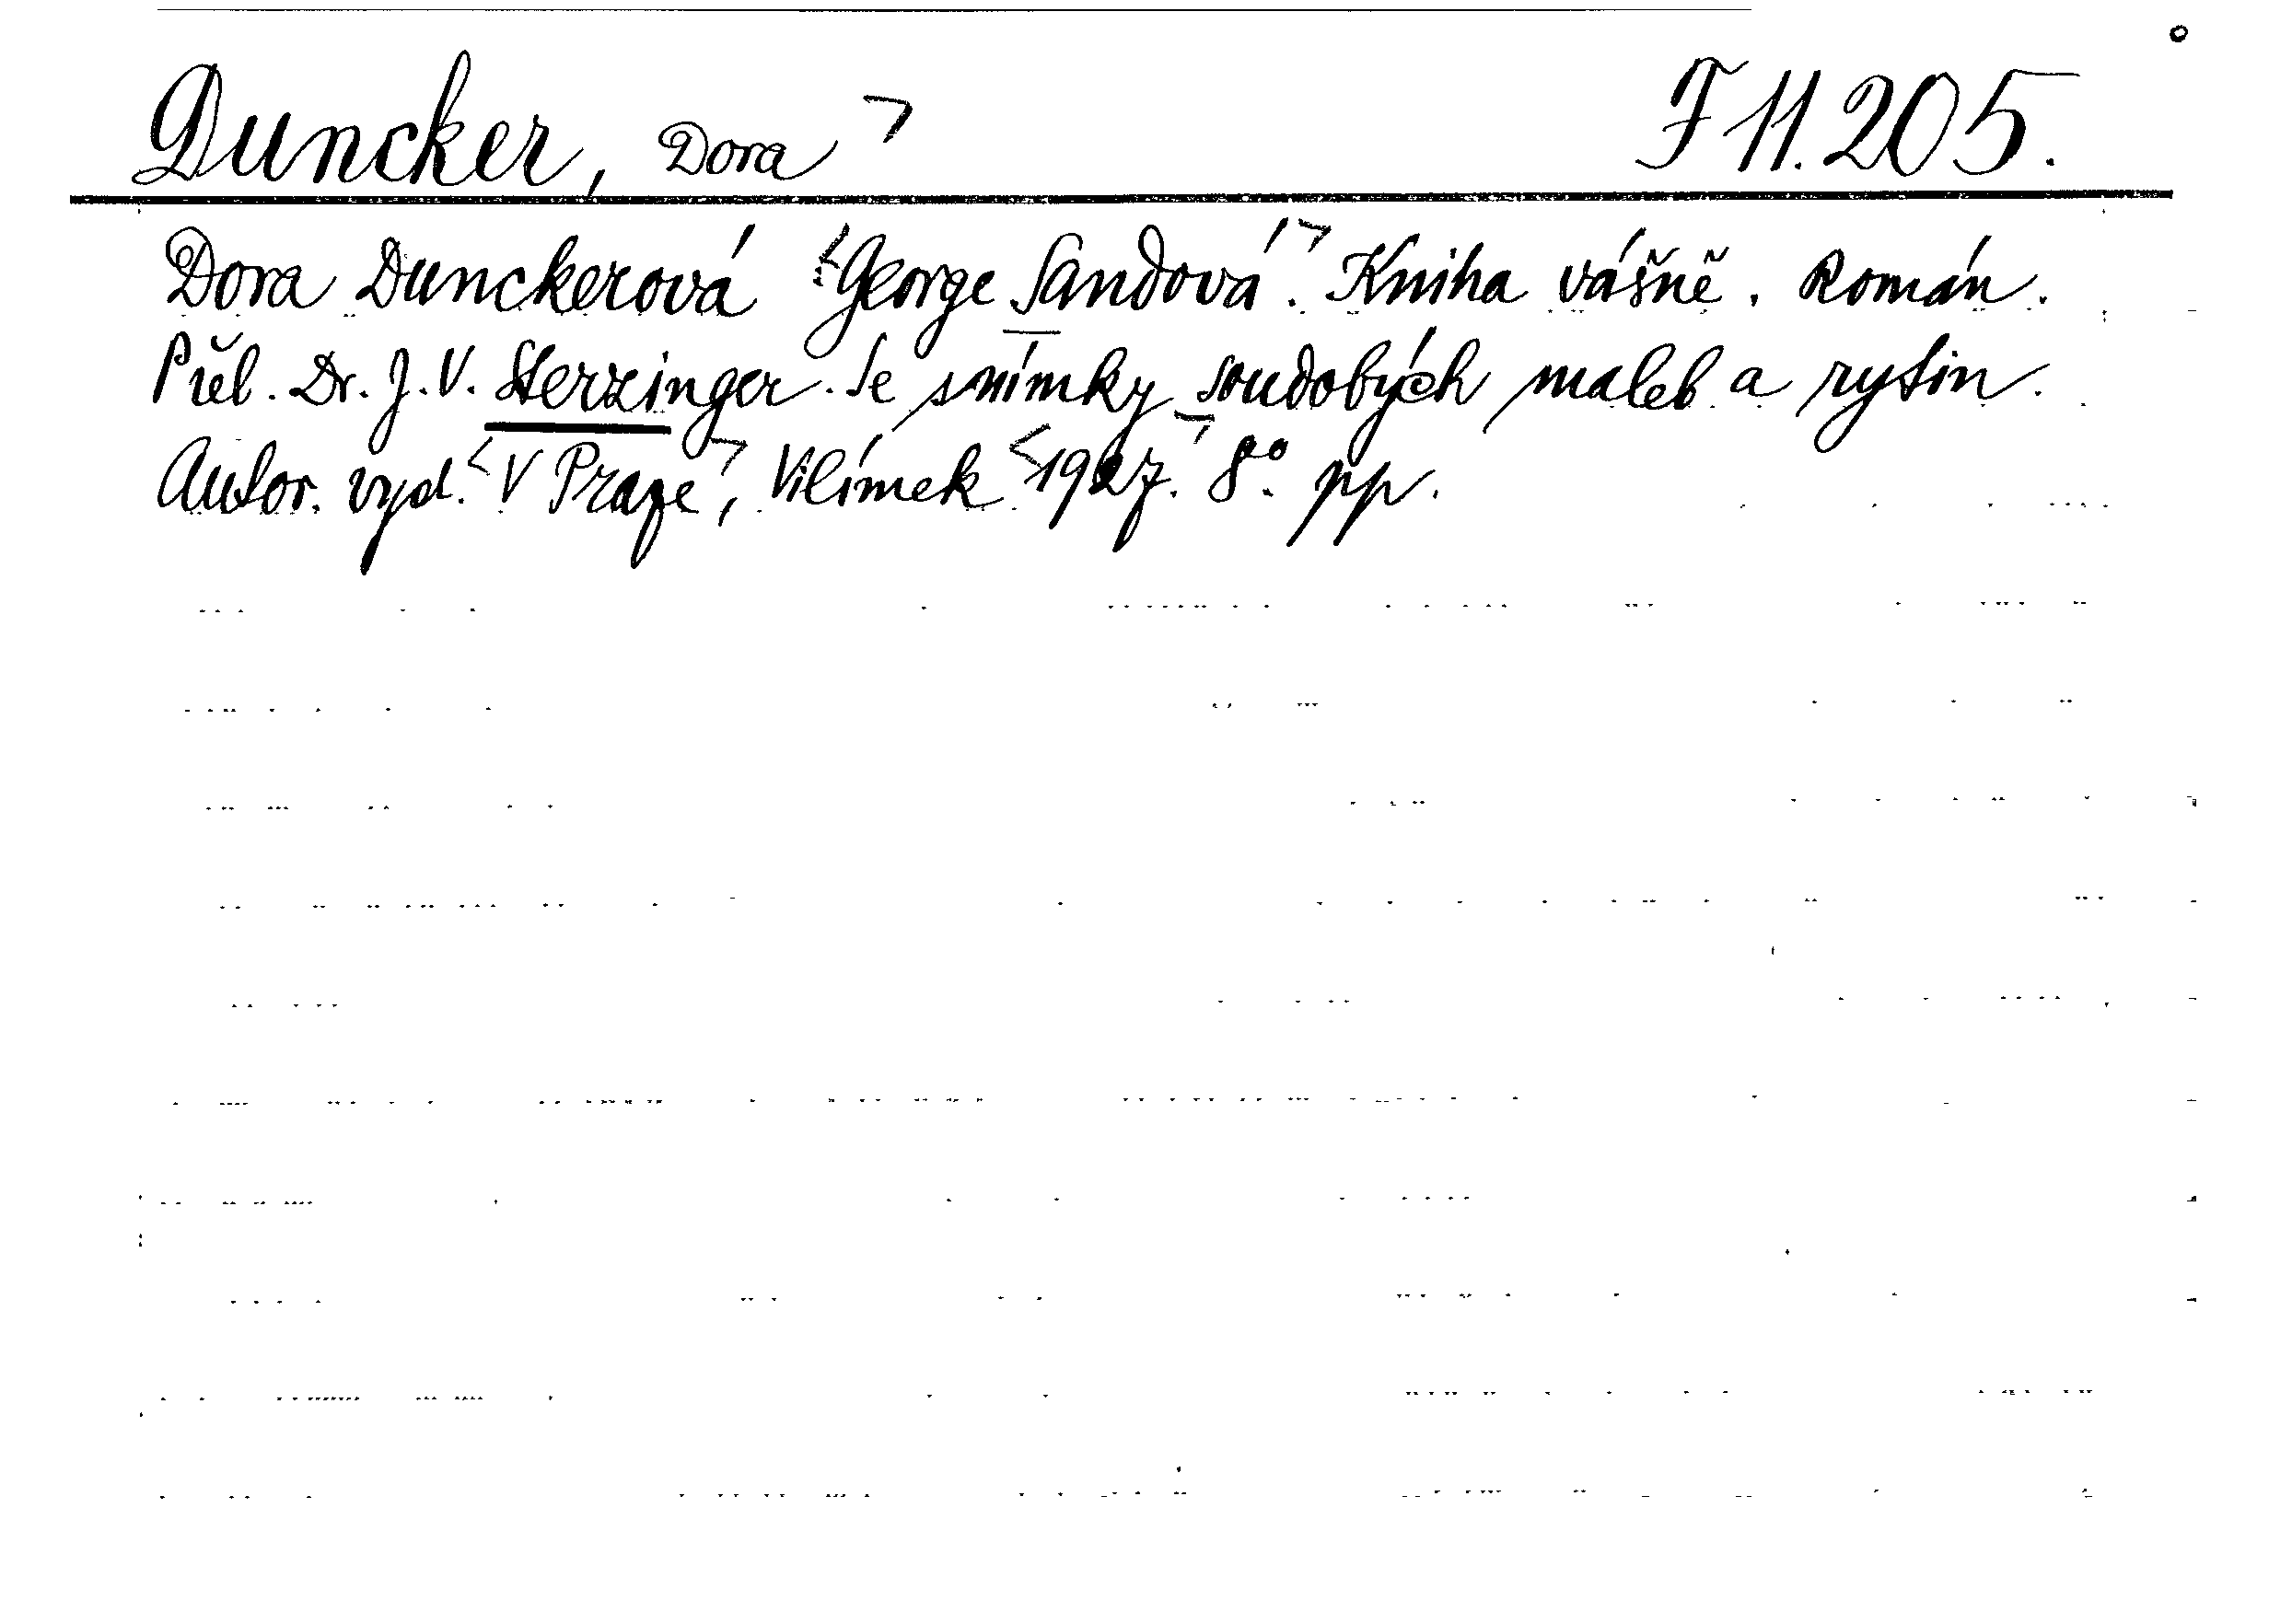 Duncker, Dora > F 11.205.
Dora Dunckerová <George Sandová>. Kniha vášně. Román.
Přel. Dr. J. V. Sterzinger. Se snímky soudobých maleb a rytin.
Autor. vyd. <V Praze>, Vilímek <1927.> 8°. pp.